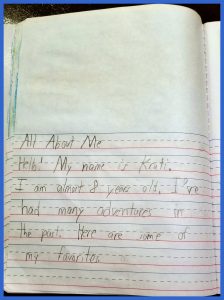 All About Me
Hello! My name is Krati.
I am almost 8 years old. I've
had many adventures in
the past. Here are some of
my favorites